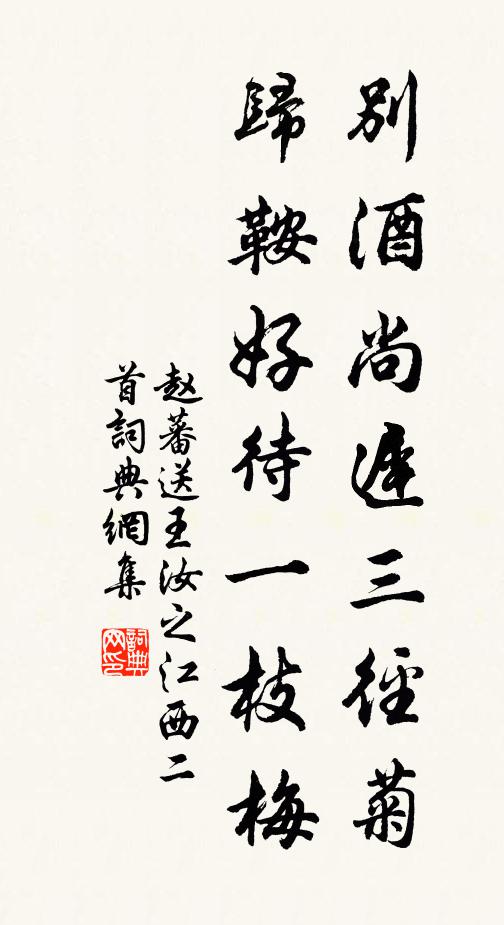 別酒尚遲三徑菊
歸鞍好待一枝梅
赵蕃送王汝之江西二
首詞典網集
詞典网印